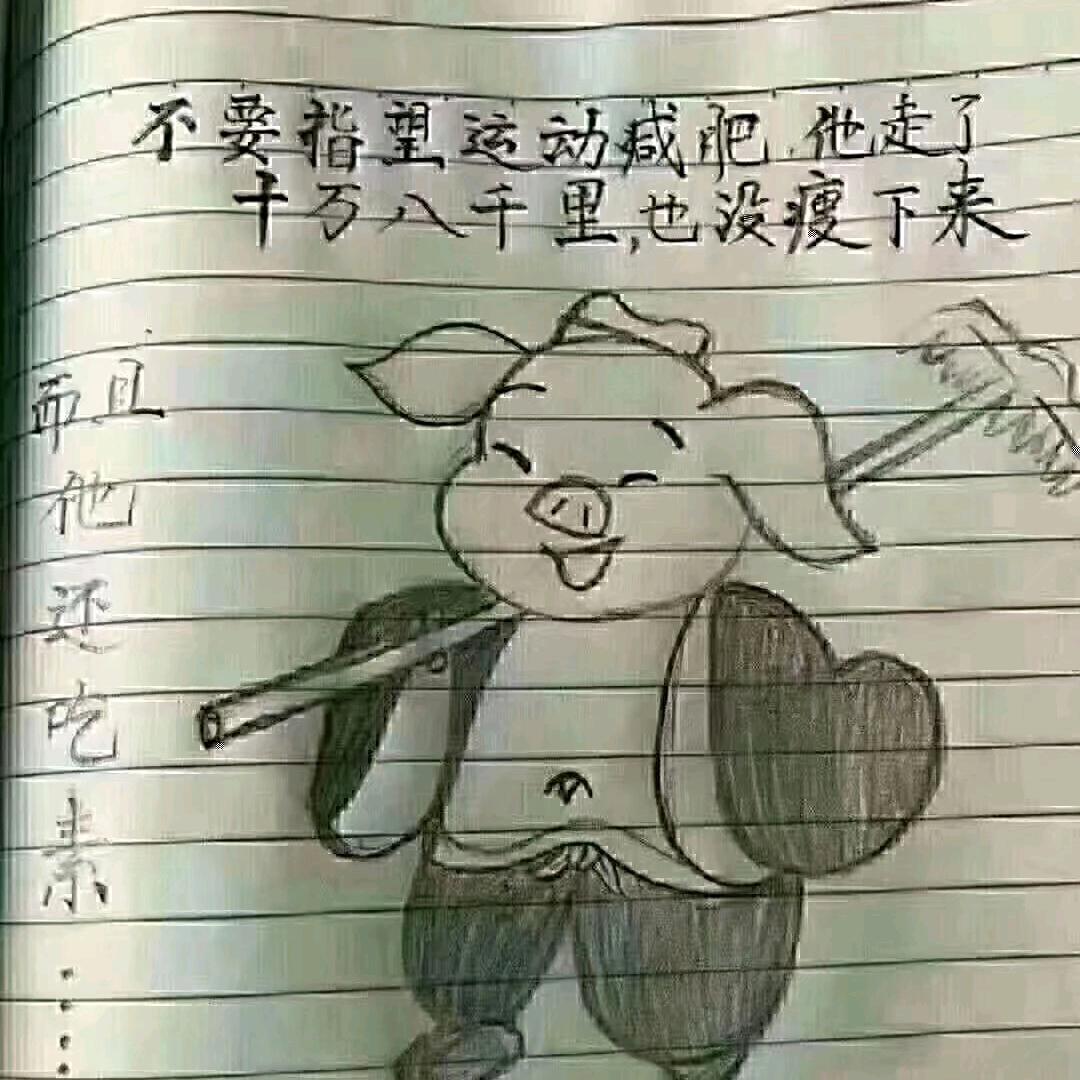 不要指望运动减肥,他走了
十万八千里,也没瘦下来
而且
他
还
吃
素
……